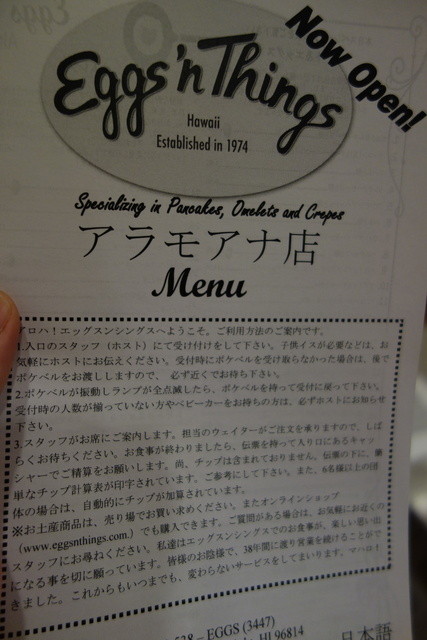 Now Open!
Eggs'n Things
Hawaii
Established in 1974
Specializing in Pancakes, Omelets and Crepes
アラモアナ店
Menu
アロハ！エッグスンシングスへようこそ。ご利用方法のご案内です。
1.入口のスタッフ（ホスト）にて受け付けをして下さい。子供イスが必要などは、お
気軽にホストにお伝えください。受付時にポケベルを受け取らなかった場合は、後で
ポケベルをお渡ししますので、必ず近くでお待ち下さい。
2.ポケベルが振動しランプが全点滅したら、ポケベルを持って受付に戻って下さい。
受付時の人数が揃っていない方やベビーカーをお持ちの方は、必ずホストにお知らせ
下さい。
3.スタッフがお席にご案内します。担当のウェイターがご注文を承りますので、しば
らくお待ちください。お食事が終わりましたら、伝票を持って入り口にあるキャッ
シャーでご精算をお願いします。尚、チップは含まれておりません。伝票の下に、簡
単なチップ計算表が印字されています。ご参考にして下さい。また、6名様以上の団
体の場合は、自動的にチップが加算されています。
※お土産商品は、売り場でお買い求めください。またオンラインショップ
（www.eggsnthings.com）でも購入できます。ご質問がある場合は、お気軽にお近くの
スタッフにお尋ねください。私達はエッグスンシングスでのお食事が、楽しい思い出
になる事を切に願っています。皆様のお陰様で、38年間に渡り営業を続けることがで
きました。これからもいつまでも、変わらないサービスをしてまいります。マハロ！
538 – EGGS (3447)
HI 96814
日本語